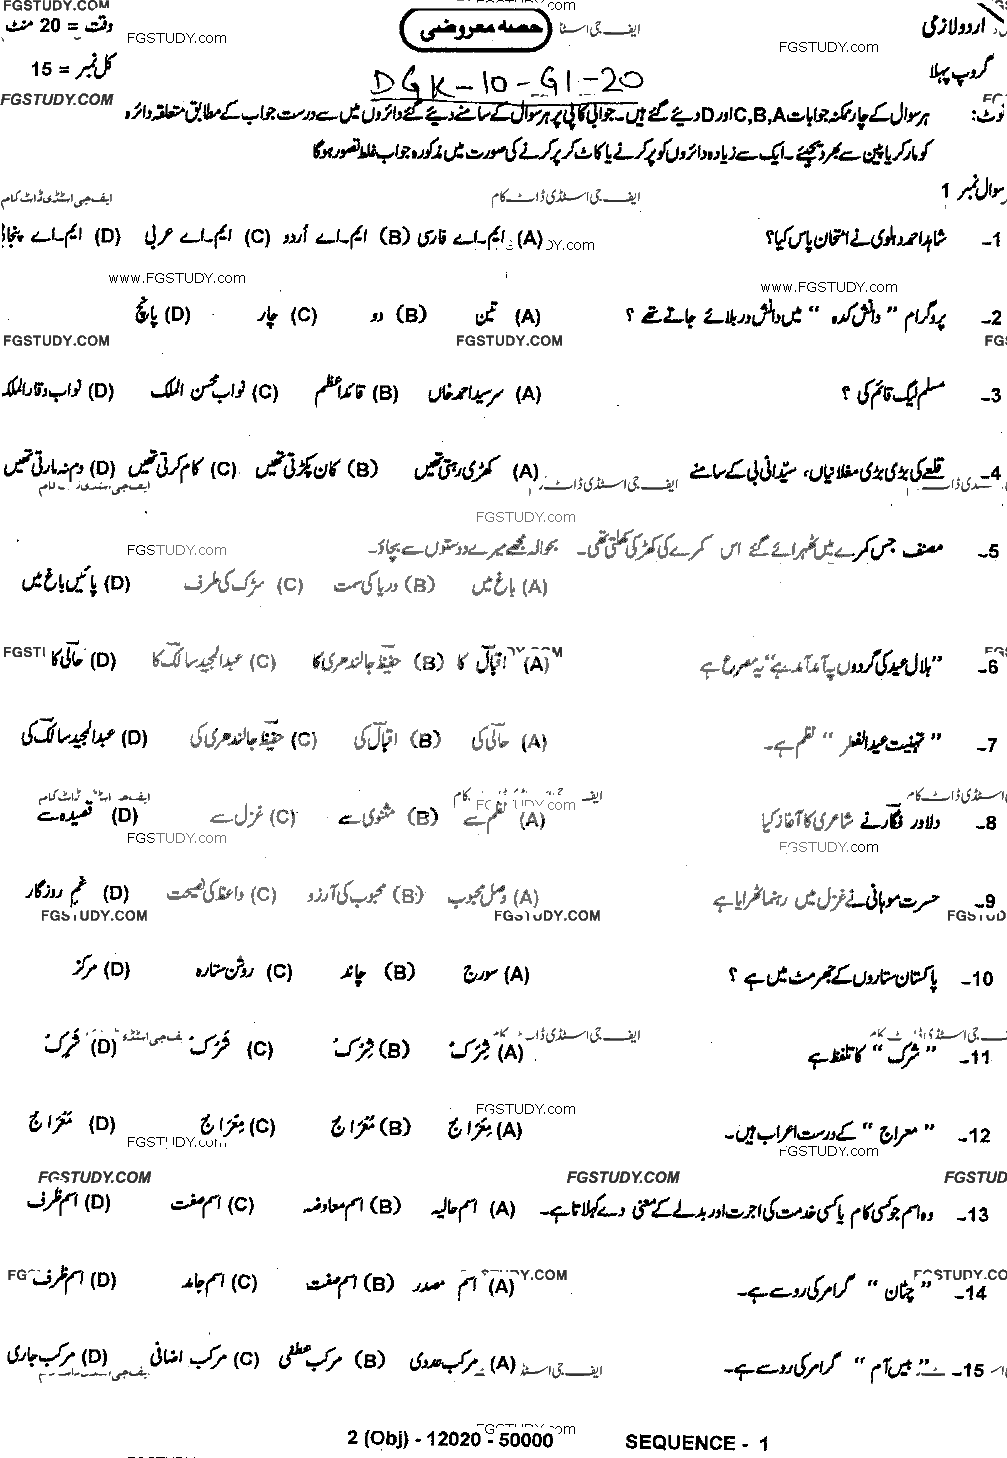 FGSTUDY.COM
اردو لازمی ایف جی اسٹڈی حصہ معروضی وقت = 20 منٹ
FGSTUDY.com FGSTUDY.com
گروپ پہلا کل نمبر = 15
DGK-10-G1-20
FGSTUDY.COM
نوٹ: ہر سوال کے چار ممکنہ جوابات C,B,A اور D دیئے گئے ہیں۔ جوابی کاپی پر ہر سوال کے سامنے دیئے گئے دائروں میں سے درست جواب کے مطابق متعلقہ دائرہ
کو مارکر یا پین سے بھر دیجئے۔ ایک سے زیادہ دائروں کو پُر کرنے یا کاٹ کر پُر کرنے کی صورت میں مذکورہ جواب غلط تصور ہوگا
سوال نمبر 1 ایف جی اسٹڈی ڈاٹ کام ایف جی اسٹڈی ڈاٹ کام
1۔ شاہد احمد دہلوی نے امتحان پاس کیا؟ (A) ایم۔اے فارسی (B) ایم۔اے اُردو (C) ایم۔اے عربی (D) ایم۔اے پنجابی
www.FGSTUDY.com www.FGSTUDY.com
2۔ پروگرام "دانش کدہ" میں دانش ور بلائے جاتے تھے ؟ (A) تین (B) دو (C) چار (D) پانچ
FGSTUDY.COM FGSTUDY.COM
3۔ مسلم لیگ قائم کی ؟ (A) سرسید احمد خاں (B) قائد اعظم (C) نواب محسن الملک (D) نواب وقار الملک
4۔ قلعے کی بڑی بڑی مغلانیاں، سیّدانی بی کے سامنے (A) کھڑی رہتی تھیں (B) کان پکڑتی تھیں (C) کام کرتی تھیں (D) دم نہ مارتی تھیں
FGSTUDY.com
5۔ مصنف جس کمرے میں ٹھہرائے گئے اس کمرے کی کھڑکی کھلتی تھی۔ بحوالہ مجھے میرے دوستوں سے بچاؤ۔ FGSTUDY.com
(A) باغ میں (B) دریا کی سمت (C) سڑک کی طرف (D) پائیں باغ میں
6۔ "ہلال عید کی گردوں پہ آمد آمد ہے" یہ مصرع ہے (A) اقبال کا (B) حفیظ جالندھری کا (C) عبدالمجید سالک کا (D) حالی کا
7۔ "تہنیت عید الفطر" نظم ہے۔ (A) حالی کی (B) اقبال کی (C) حفیظ جالندھری کی (D) عبدالمجید سالک کی
8۔ دلاور فگار نے شاعری کا آغاز کیا (A) نظم سے (B) مثنوی سے (C) غزل سے (D) قصیدہ سے
FGSTUDY.com FGSTUDY.com
9۔ حسرت موہانی نے غزل میں رہنما ٹھرایا ہے (A) وصل محبوب (B) محبوب کی آرزو (C) واعظ کی نصیحت (D) غم روزگار
FGSTUDY.COM FGSTUDY.COM
10۔ پاکستان ستاروں کے جھرمٹ میں ہے ؟ (A) سورج (B) چاند (C) روشن ستارہ (D) مرکز
11۔ "شرک" کا تلفظ ہے (A) شِرَک (B) شِرْک (C) شَرَک (D) شَرْک
FGSTUDY.com
12۔ "معراج" کے درست اعراب ہیں۔ (A) مِعْرَاج (B) مَعْرَاج (C) مِعَرَاج (D) مُعْرَاج
FGSTUDY.com
FGSTUDY.COM FGSTUDY.COM FGSTUDY
13۔ وہ اسم جو کسی کام یا کسی خدمت کی اجرت اور بدلے کے معنی دے کہلاتا ہے۔ (A) اسم حالیہ (B) اسم معاوضہ (C) اسم صفت (D) اسم ظرف
14۔ "چٹان" گرامر کی رو سے ہے۔ (A) اسم مصدر (B) اسم صفت (C) اسم جامد (D) اسم ظرف
15۔ "بیس آم" گرامر کی رو سے ہے۔ (A) مرکب عددی (B) مرکب عطفی (C) مرکب اضافی (D) مرکب جاری
2 (Obj) - 12020 - 50000 SEQUENCE - 1